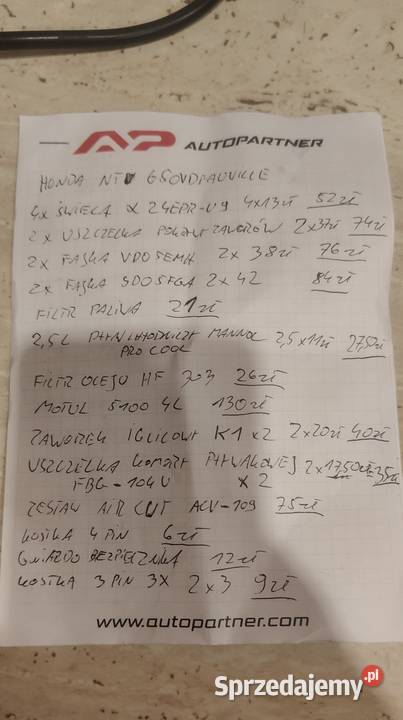 AP AUTOPARTNER
HONDA NTV 650V DEAUVILLE
4x ŚWIECA 24EPR-U9 4x13zł 52zł
2x USZCZELKA POKRYW ZAWORÓW 2x37zł 74zł
2x FAJKA VD05EMH 2x 38zł 76zł
2x FAJKA SD05FGA 2x42 84zł
FILTR PALIWA 21zł
2,5L PŁYN CHŁODNICZY MANNOL 2,5x11zł 27,50zł
PRO COOL
FILTR OLEJU HF 303 26zł
MOTUL 5100 4L 130zł
ZAWOREK IGLICOWY K1 x2 2x20zł 40zł
USZCZELKA KOMORY PŁYWAKOWEJ 2x17,50zł 35zł
FBG-104U x2
ZESTAW AIR CUT ACV-109 75zł
KOSTKA 4 PIN 6zł
GNIAZDO BEZPIECZNIKA 12zł
KOSTKA 3 PIN 3X 2x3 9zł
www.autopartner.com
Sprzedajemy.pl